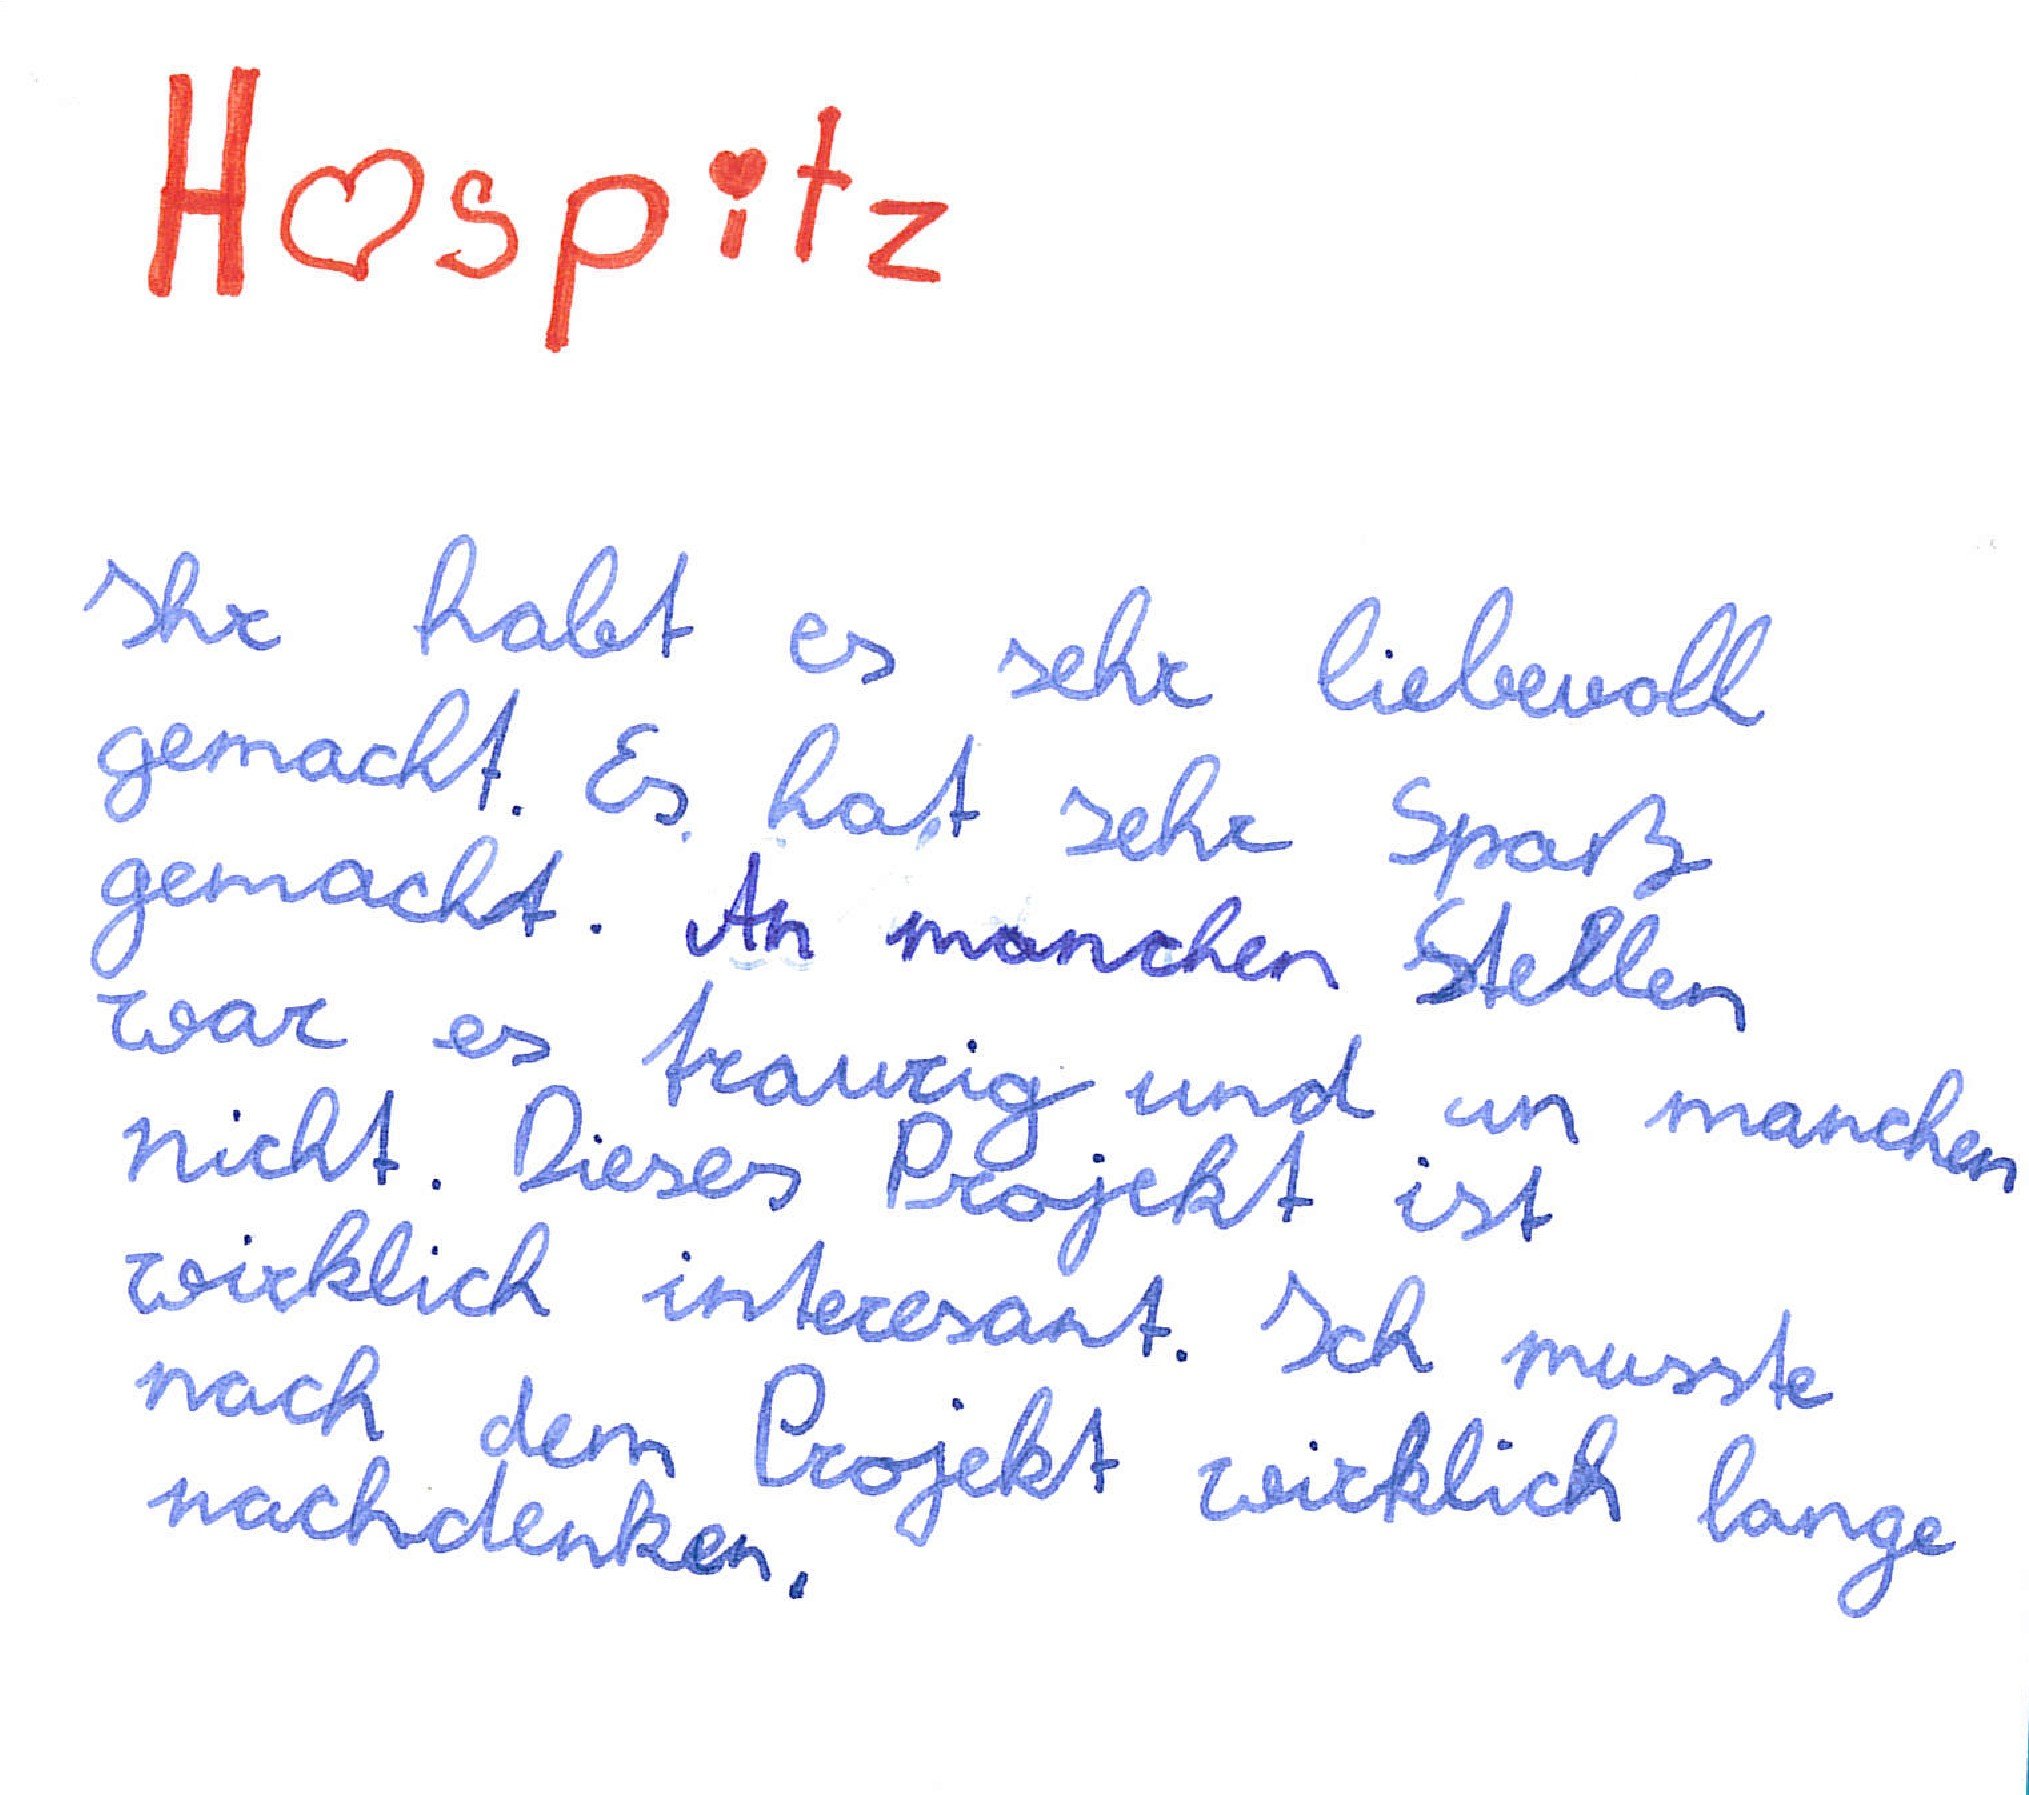 Hospitz
Ihr habt es sehr liebevoll
gemacht. Es hat sehr Spaß
gemacht. An manchen Stellen
war es traurig und an manchen
nicht. Dieses Projekt ist
wirklich interesant. Ich musste
nach dem Projekt wirklich lange
nachdenken.